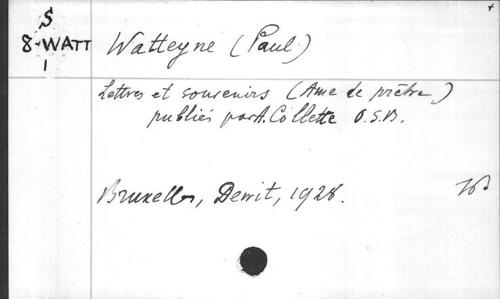 S
8-WATT
1
Watteyne (Paul)
Lettres et souvenirs (Ame de prêtre)
publiés par A. Collette O.S.B.
Bruxelles, Dewit, 1928.